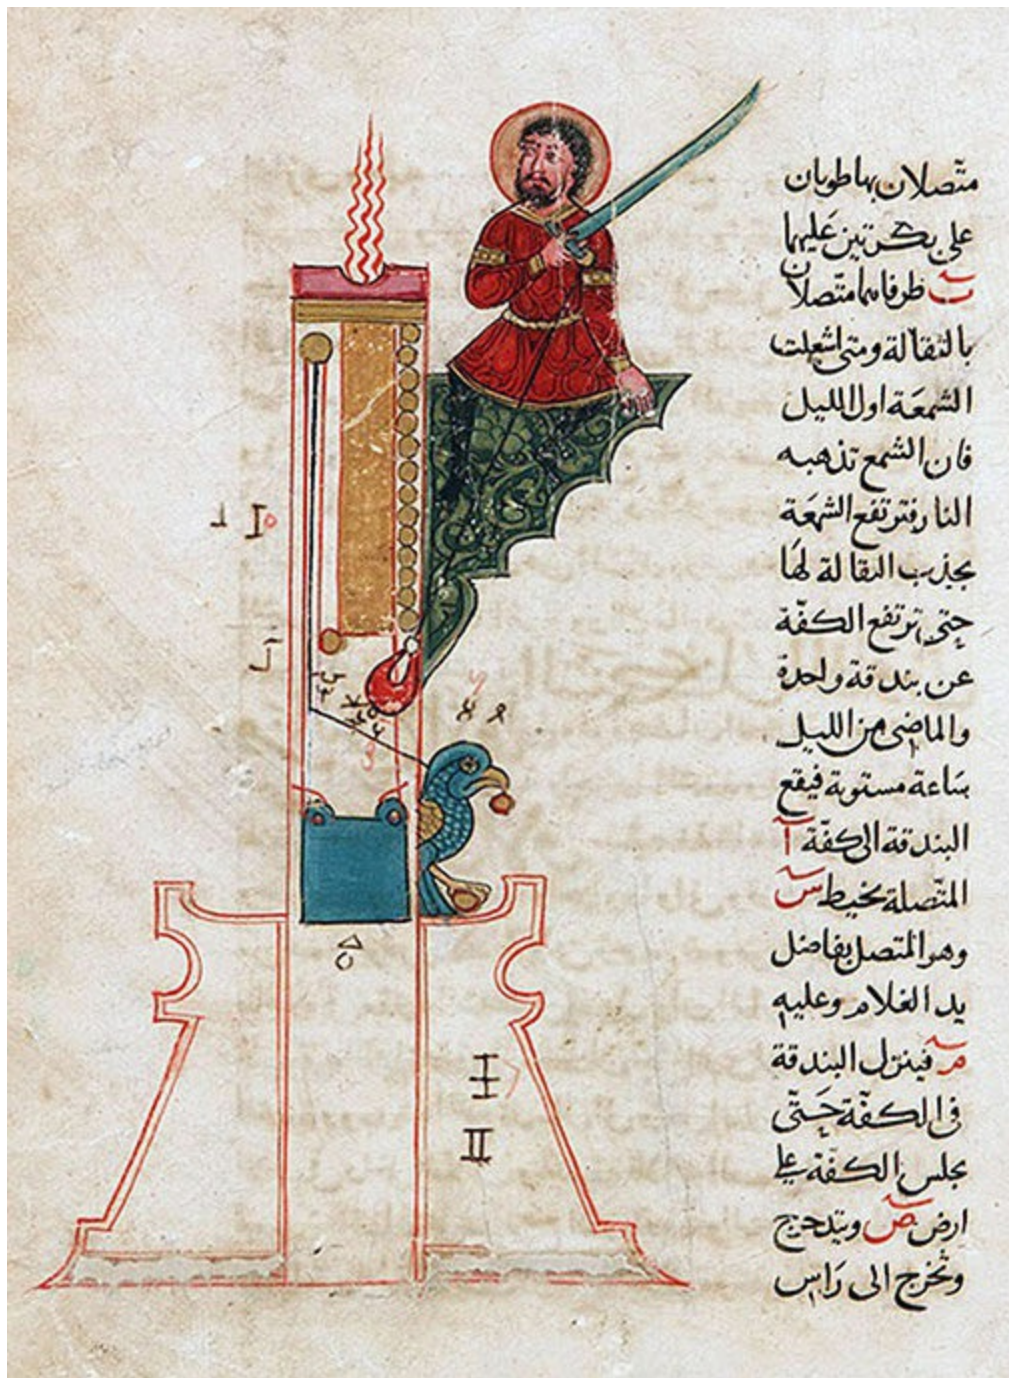 متصلان بهاطوبان
على بكرتين عليهما
ب طرفاهما متصلان
بالثقالة ومتى اشعلت
الشمعة اول الليل
فان الشمع تذهبه
النار فترتفع الشمعة
بجذب الثقالة لها
حتى ترتفع الكفة
عن بندقة واحدة
والماضى من الليل
ساعة مستوية فيقع
البندقة الى كفة آ
المتصلة بخيط س
وهو المتصل بفاضل
يد الغلام وعليه
م فينزل البندقة
فى الكفة حتى
يجلس الكفة على
ارض ص ويتدحرج
وتخرج الى راس